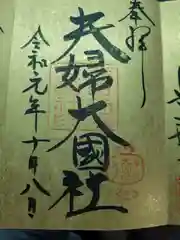 奉拝
夫婦大國社
令和元年十月八日